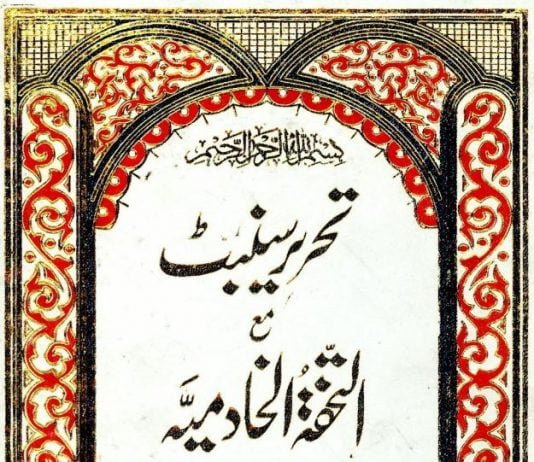 بسم الله الرحمن الرحیم
تحریر سنبٹ
مع
التحفۃ الخادمیہ